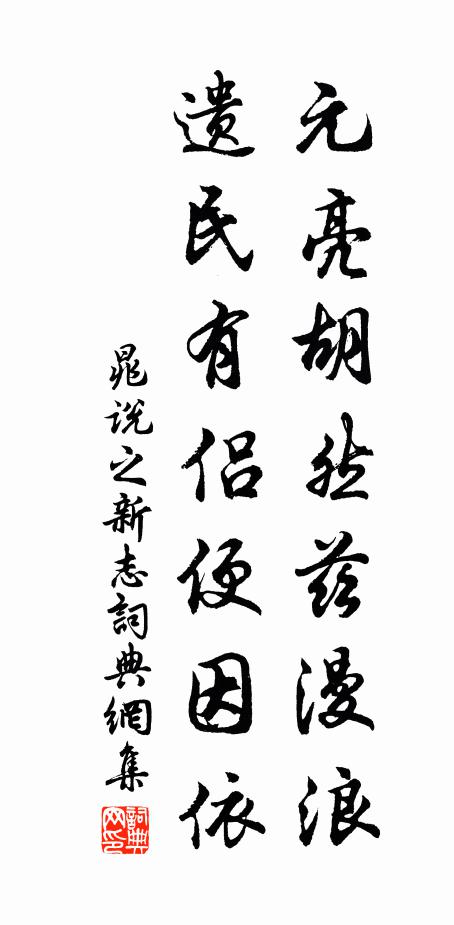 元亮胡然茲漫浪
遺民有侶便因依
晁說之新志詞典網集
詞典网印